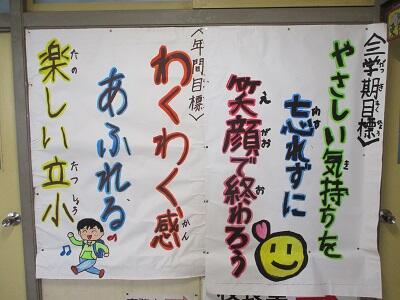 〈三学期目標〉
やさしい気持ちを
忘れずに
笑顔で終わろう
〈年間目標〉
わくわく感
あふれる
楽しい立小